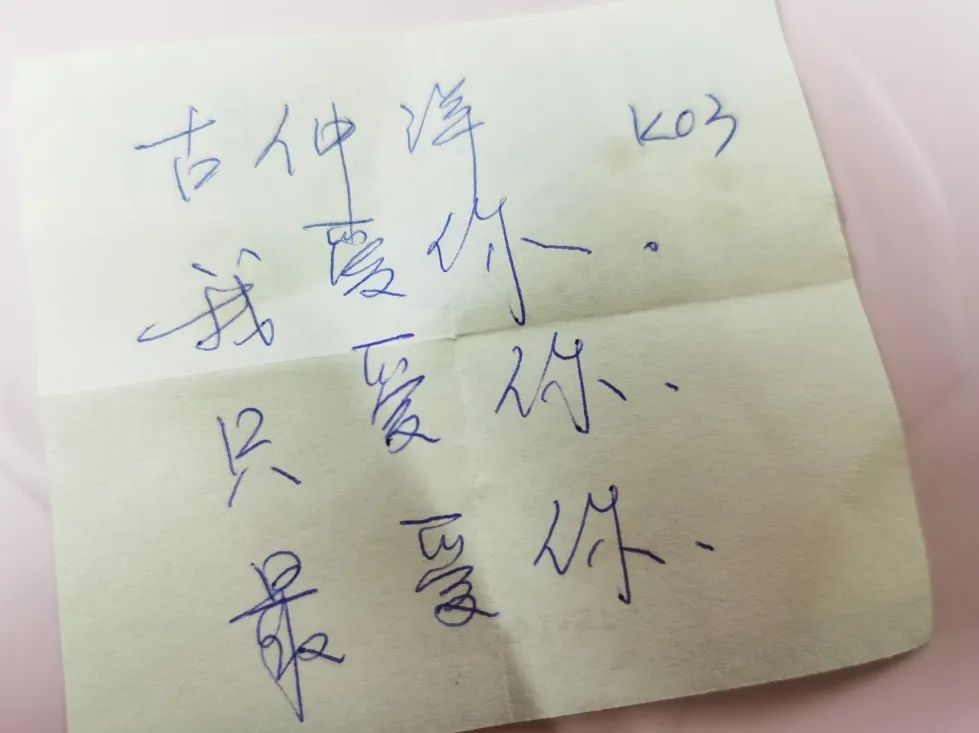 古仲洋 K03
我爱你.
只爱你.
最爱你.